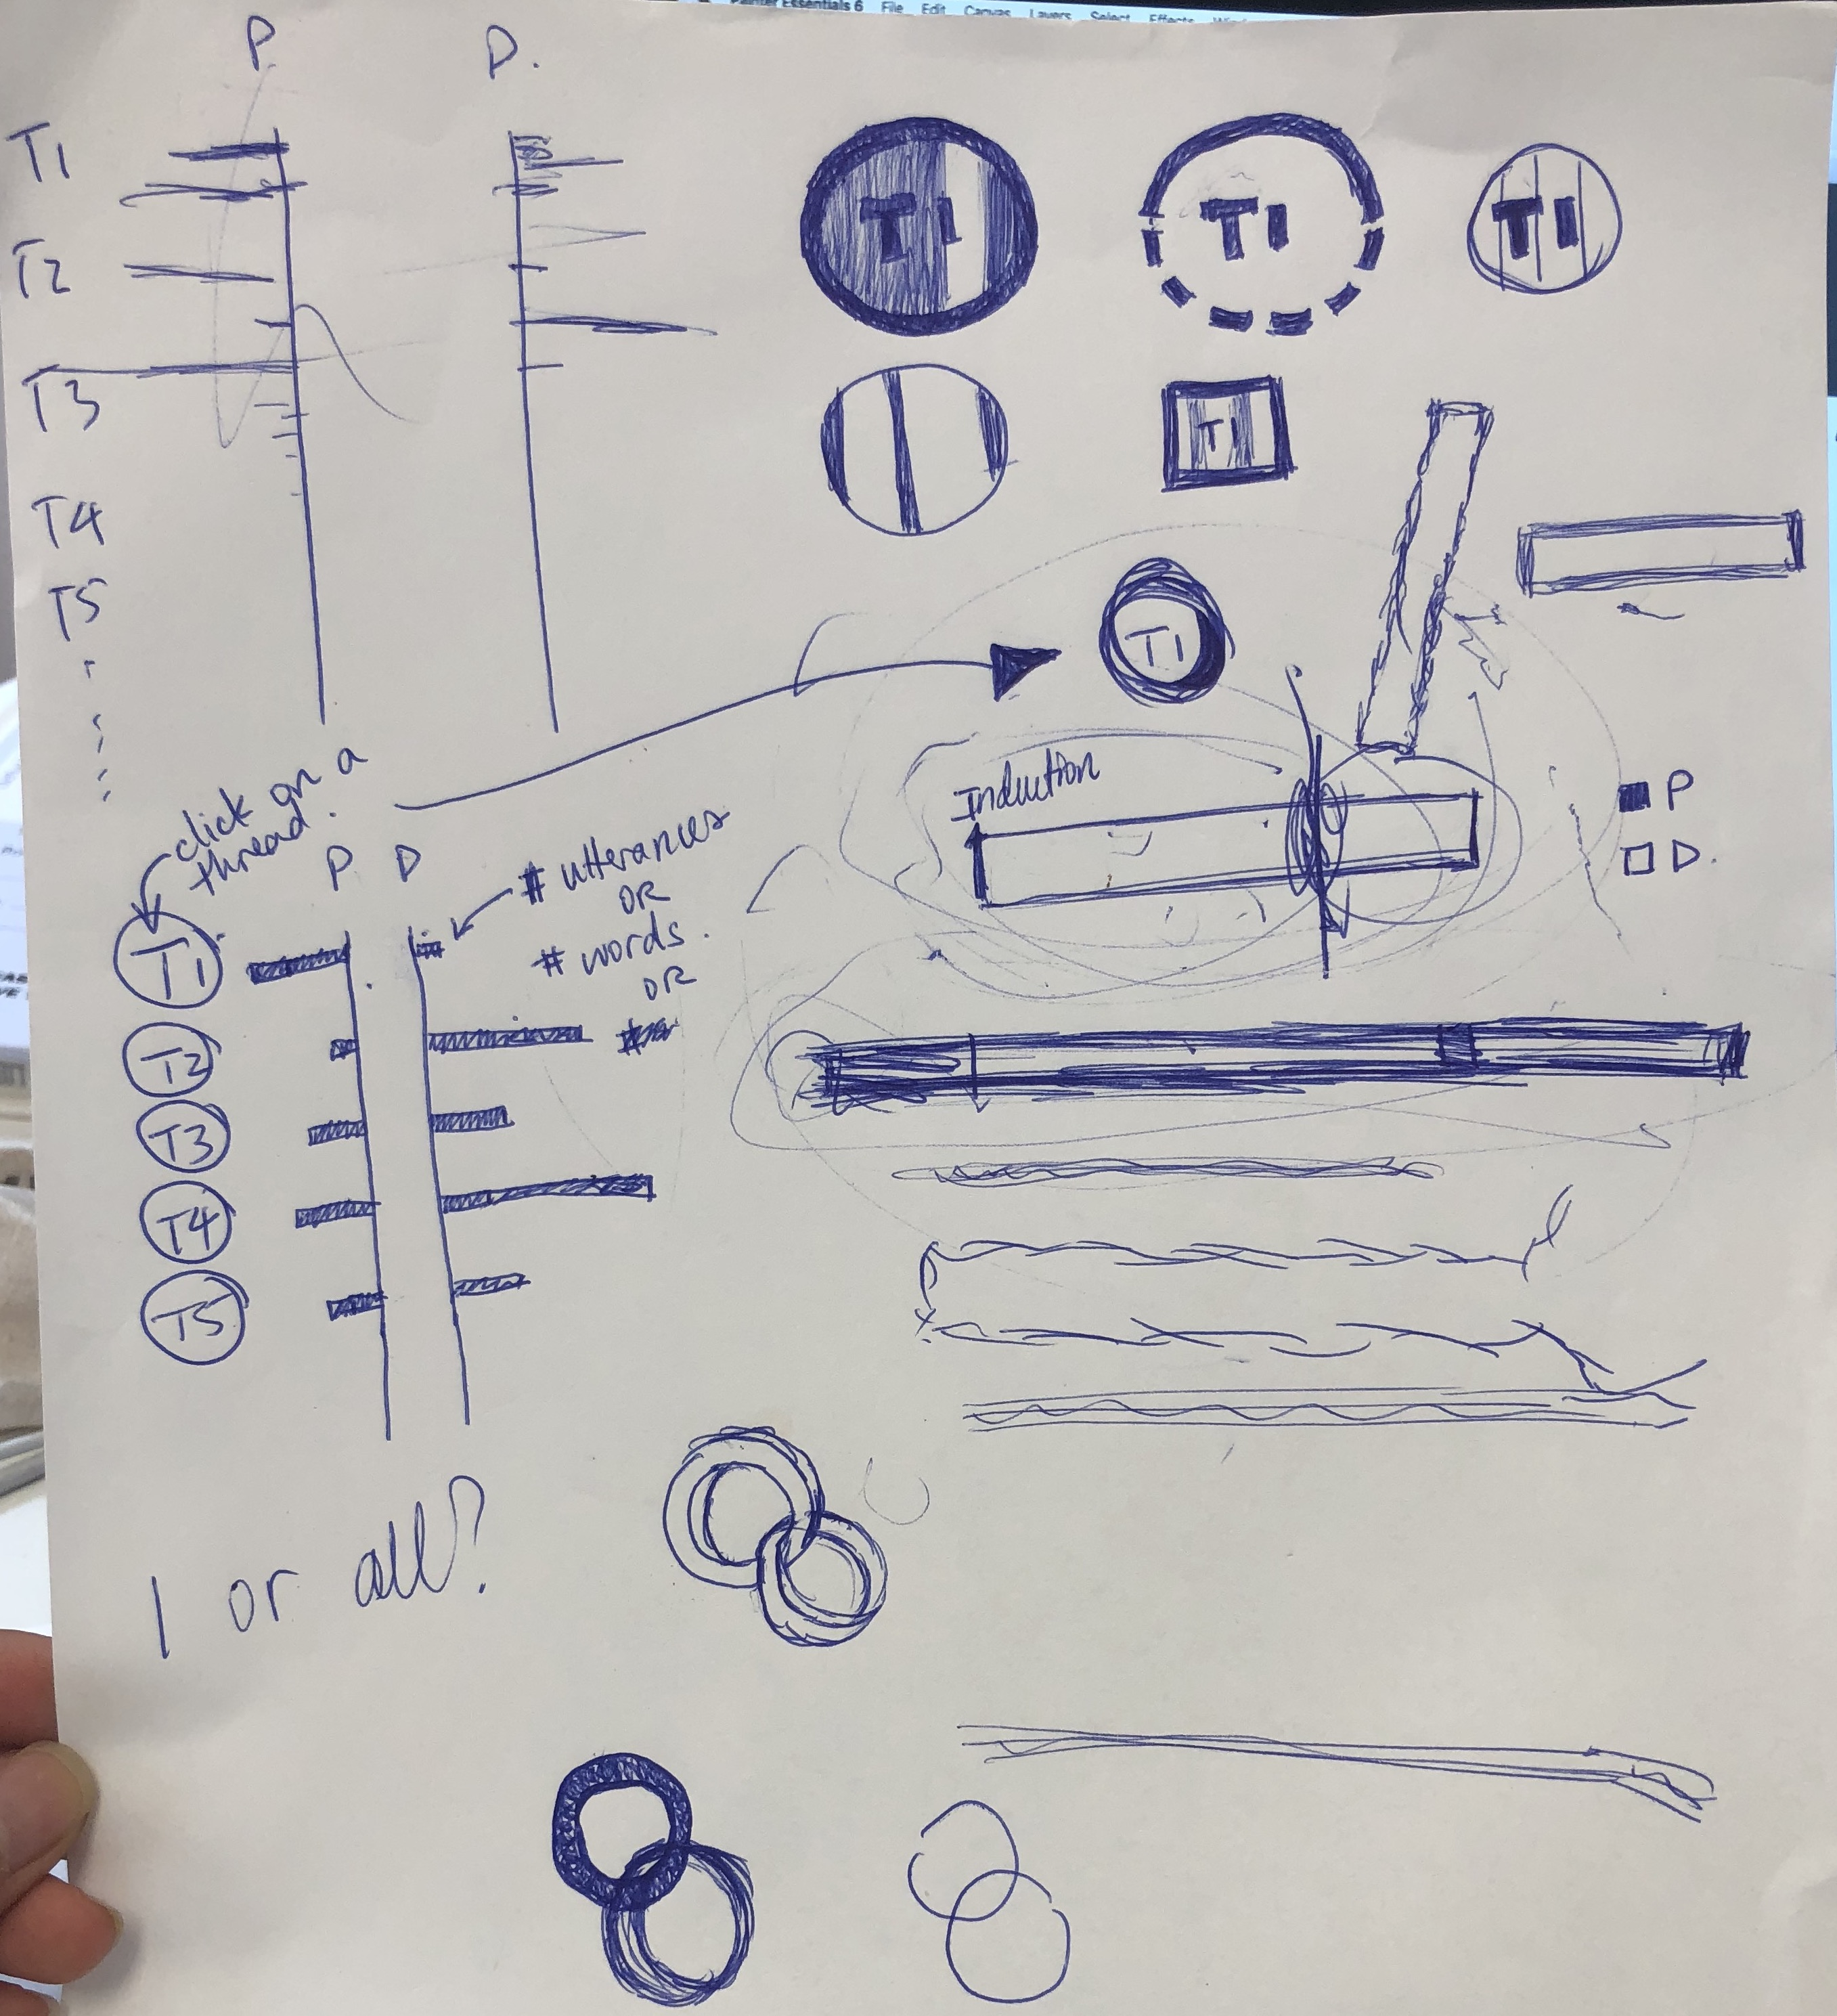 Painter Essentials 6 File Edit Canvas Layers Select Effects
P. D.
T1
T2
T3
T4
T5
T1
T1
T1
T1
T1
Induction
P
D.
click on a
thread.
P D
# utterances
OR
# words.
OR
T1
T2
T3
T4
T5
1 or all?